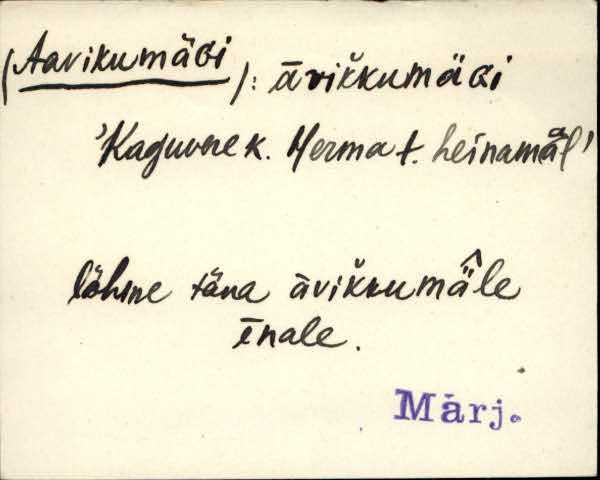 (Aavikumägi): āvikkumäGi
'Kaguvere k. Herma t. heinamäl'
lähme täna āvikkumä̂le
īnale.
Märj.